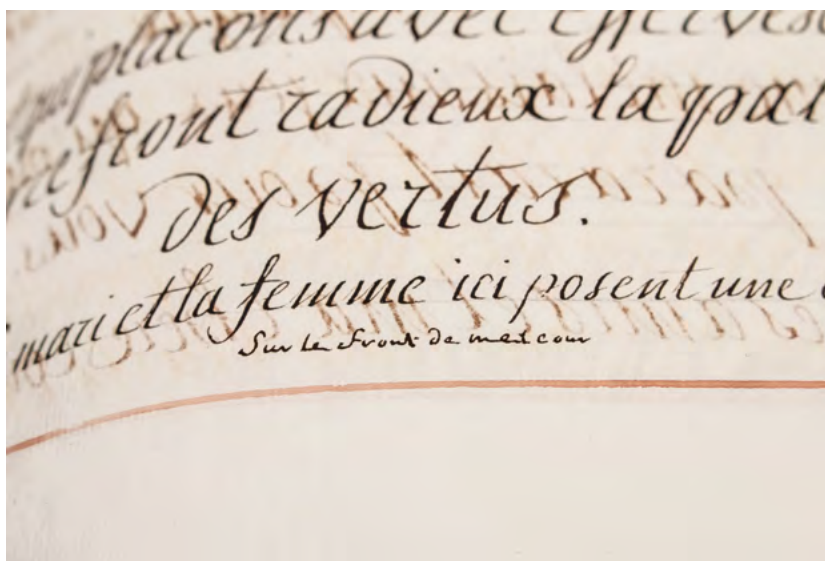 plaçons avec efferves
front radieux la pal
des vertus.
mari et la femme ici posent une
Sur le front de melcour